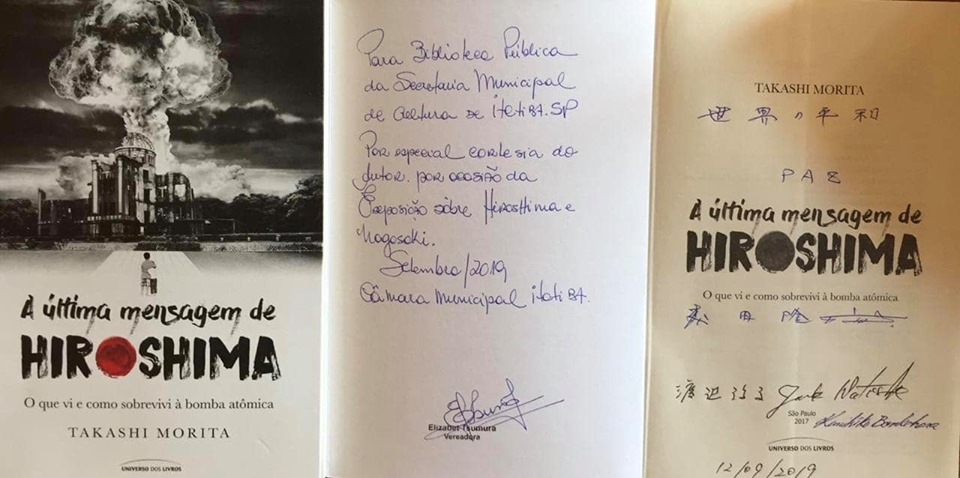 A última mensagem de
HIROSHIMA
O que vi e como sobrevivi à bomba atômica
TAKASHI MORITA
UNIVERSO DOS LIVROS
Para Biblioteca Pública
da Secretaria Municipal
de Cultura de Itatiba.SP
Por especial cortesia do
Autor. por ocasião da
Exposição sobre Hiroshima e
Nagasaki.
Setembro/2019
Câmara Municipal Itatiba.
Elizabet Tsumura
Vereadora
TAKASHI MORITA
世界の平和
PAZ
A última mensagem de
HIROSHIMA
O que vi e como sobrevivi à bomba atômica
森田隆
渡辺淳子
São Paulo
2017
UNIVERSO DOS LIVROS
12/09/2019